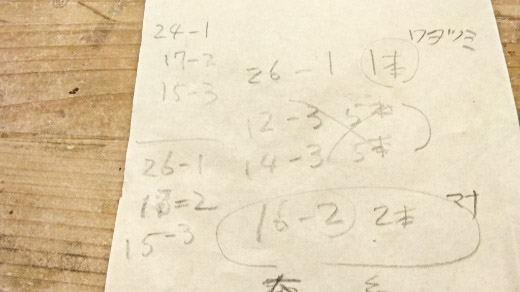 24-1
17-2
15-3
26-1
15-3
ワダツミ
26-1 1本
12-3 5本
14-3 5本
16-2 2本